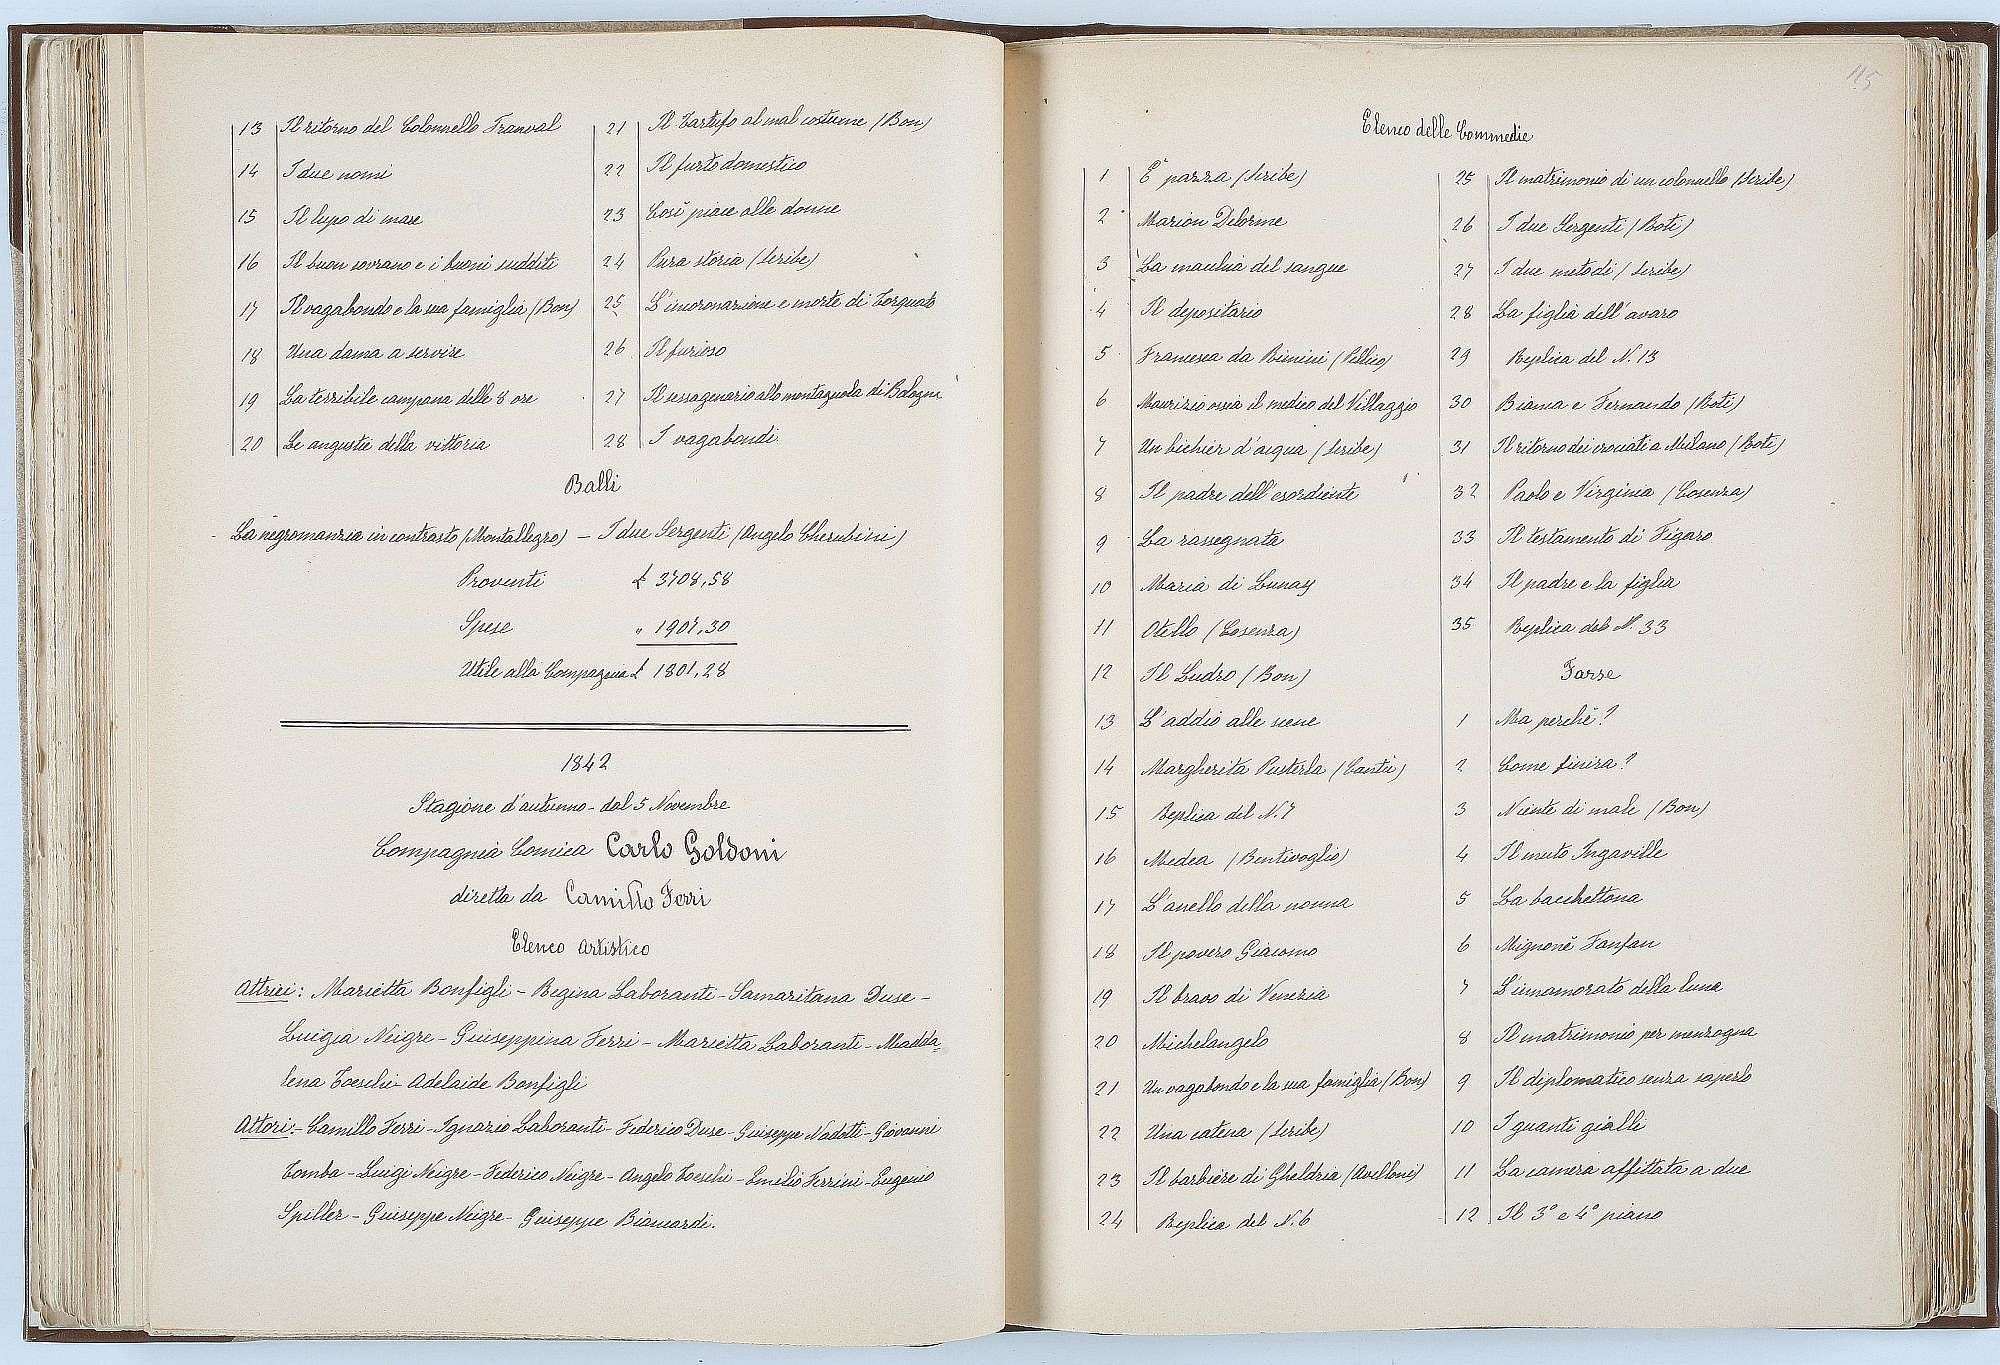 13 Il ritorno del Colonnello Franval
14 I due nomi
15 Il lupo di mare
16 Il buon sovrano e i buoni sudditi
17 Il vagabondo e la sua famiglia (Bon)
18 Una dama a servire
19 La terribile campana delle 8 ore
20 Le angustie della vittoria
21 Il Tartufo al mal costume (Bon)
22 Il furto domestico
23 Così piace alle donne
24 Pura storia (Scribe)
25 L'incoronazione e morte di Torquato
26 Il furioso
27 Il sessagenario alla montagnola di Bologna
28 I vagabondi
Balli
La negromanzia in contrasto (Montallegro) - I due Sergenti (Angelo Cherubini)
Proventi £ 3708,58
Spese " 1907,30
Utile alla Compagnia £ 1801,28
1842
Stagione d'autunno - dal 5 Novembre
Compagnia Comica Carlo Goldoni
diretta da Camillo Ferri
Elenco Artistico
Attrici: Marietta Bonfigli - Regina Laboranti - Samaritana Duse -
Luigia Neigre - Guiseppina Ferri - Marietta Laboranti - Madda=
lena Toeschi - Adelaide Bonfigli
Attori: - Camillo Ferri - Ignazio Laboranti - Federico Duse - Guiseppe Nadotti - Giovanni
Tomba - Luigi Neigre - Federico Neigre - Angelo Toeschi - Emilio Ferrini - Eugenio
Spiller - Guiseppe Neigre - Guiseppe Biancardi.
115
Elenco delle Commedie
1 È pazza (Scribe)
2 Marion Delorme
3 La macchia del sangue
4 Il depositario
5 Francesca da Rimini (Pellico)
6 Maurizio ossia il medico del Villaggio
7 Un bichier d'acqua (Scribe)
8 Il padre dell'esordiente
9 La rassegnata
10 Maria di Lunay
11 Otello (Cosenza)
12 Il Ludro (Bon)
13 L'addio alle scene
14 Margherita Pusterla (Cantù)
15 Replica del N. 7
16 Medea (Bentivoglio)
17 L'anello della nonna
18 Il povero Giacomo
19 Il bravo di Venezia
20 Michelangelo
21 Un vagabondo e la sua famiglia (Bon)
22 Una catena (Scribe)
23 Il barbiere di Gheldria (Avelloni)
24 Replica del N. 6
25 Il matrimonio di un colonnello (Scribe)
26 I due Sergenti (Roti)
27 I due metodi (Scribe)
28 La figlia dell'avaro
29 Replica del N. 13
30 Bianca e Fernando (Roti)
31 Il ritorno dei crociati a Milano (Roti)
32 Paolo e Virginia (Cosenza)
33 Il testamento di Figaro
34 Il padre e la figlia
35 Replica del N. 33
Farse
1 Ma perchè?
2 Come finirà?
3 Niente di male (Bon)
4 Il muto Ingaville
5 La bacchettona
6 Mignonè Fanfan
7 L'innamorato della luna
8 Il matrimonio per menzogna
9 Il diplomatico senza saperlo
10 I guanti gialli
11 La camera affittata a due
12 Il 3° e 4° piano